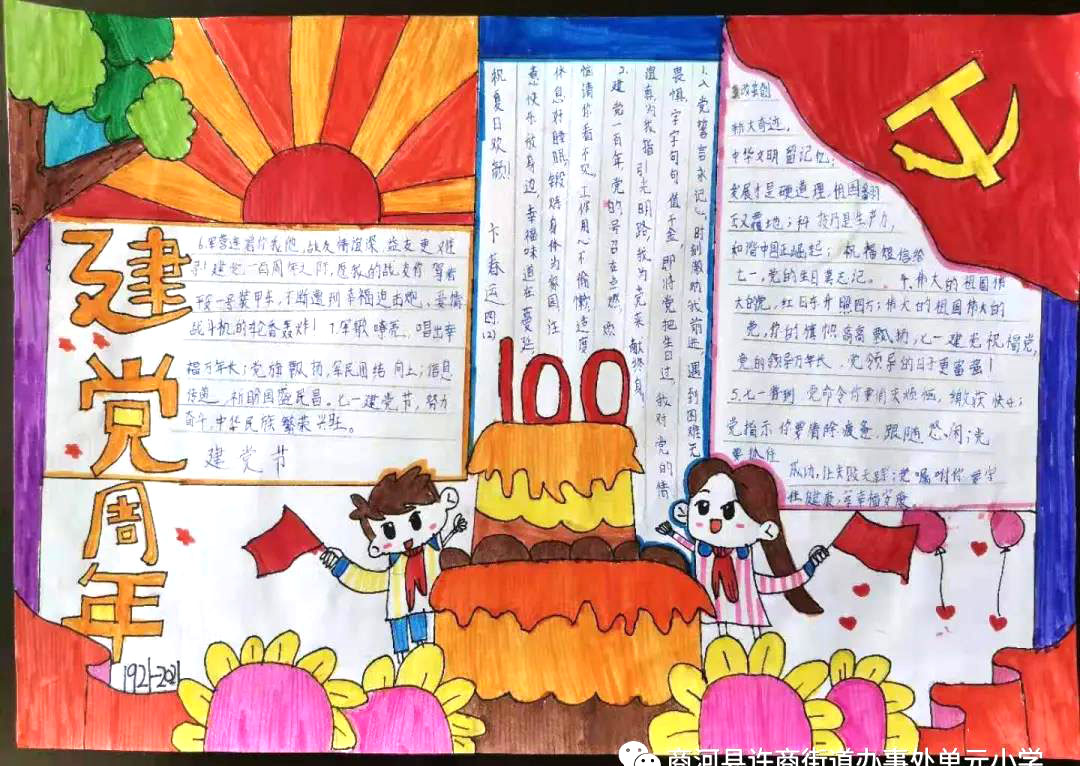 建
党
周
年
1921-2021
6.军营连着你我他，战友情谊深，
建党一百周年之际，愿我的战友们驾着
战斗机的轮番轰炸！7.军歌嘹亮，唱出幸
福万年长；党旗飘扬，军民团结向上；信息
传递，祈盼国盛民昌。七一建党节，努力
奋斗，中华民族繁荣兴旺。
建党节
100
1.入党誓言永记心，时刻激励我前进，遇到困难无
畏惧，字字句句值千金，即将党把生日过，我对党的情
谊真，为我指引光明路，我为党来献终身。
2.建党一百年，党的号召在点燃，
恼清你看不见，工作用心不偷懒，适度
休息好睡眠，锻炼身体为家园，注
意快乐放身边，幸福味道在蔓延
祝夏日欢歌！
卡春运四(2)
改革创
特大奇迹，
中华文明留记忆；
发展才是硬道理，祖国翻
天又覆地；科技乃是生产力，
和谐中国正崛起；祝福短信给
七一，党的生日莫忘记。4.伟大的祖国伟
大的党，红日东升照四方；伟大的祖国伟大的
党，你的旗帜高高飘扬，七一建党祝福党，
党的领导万年长，党领导的日子更富强！
5.七一普到，党命令你要消灭烦恼，缴获快乐；
党指示你要清除疲惫，跟随悠闲；党
要抓住
成功，让失败无踪；党嘱咐你要守
住健康，享幸福安康。
商河县许商街道办事处单元小学